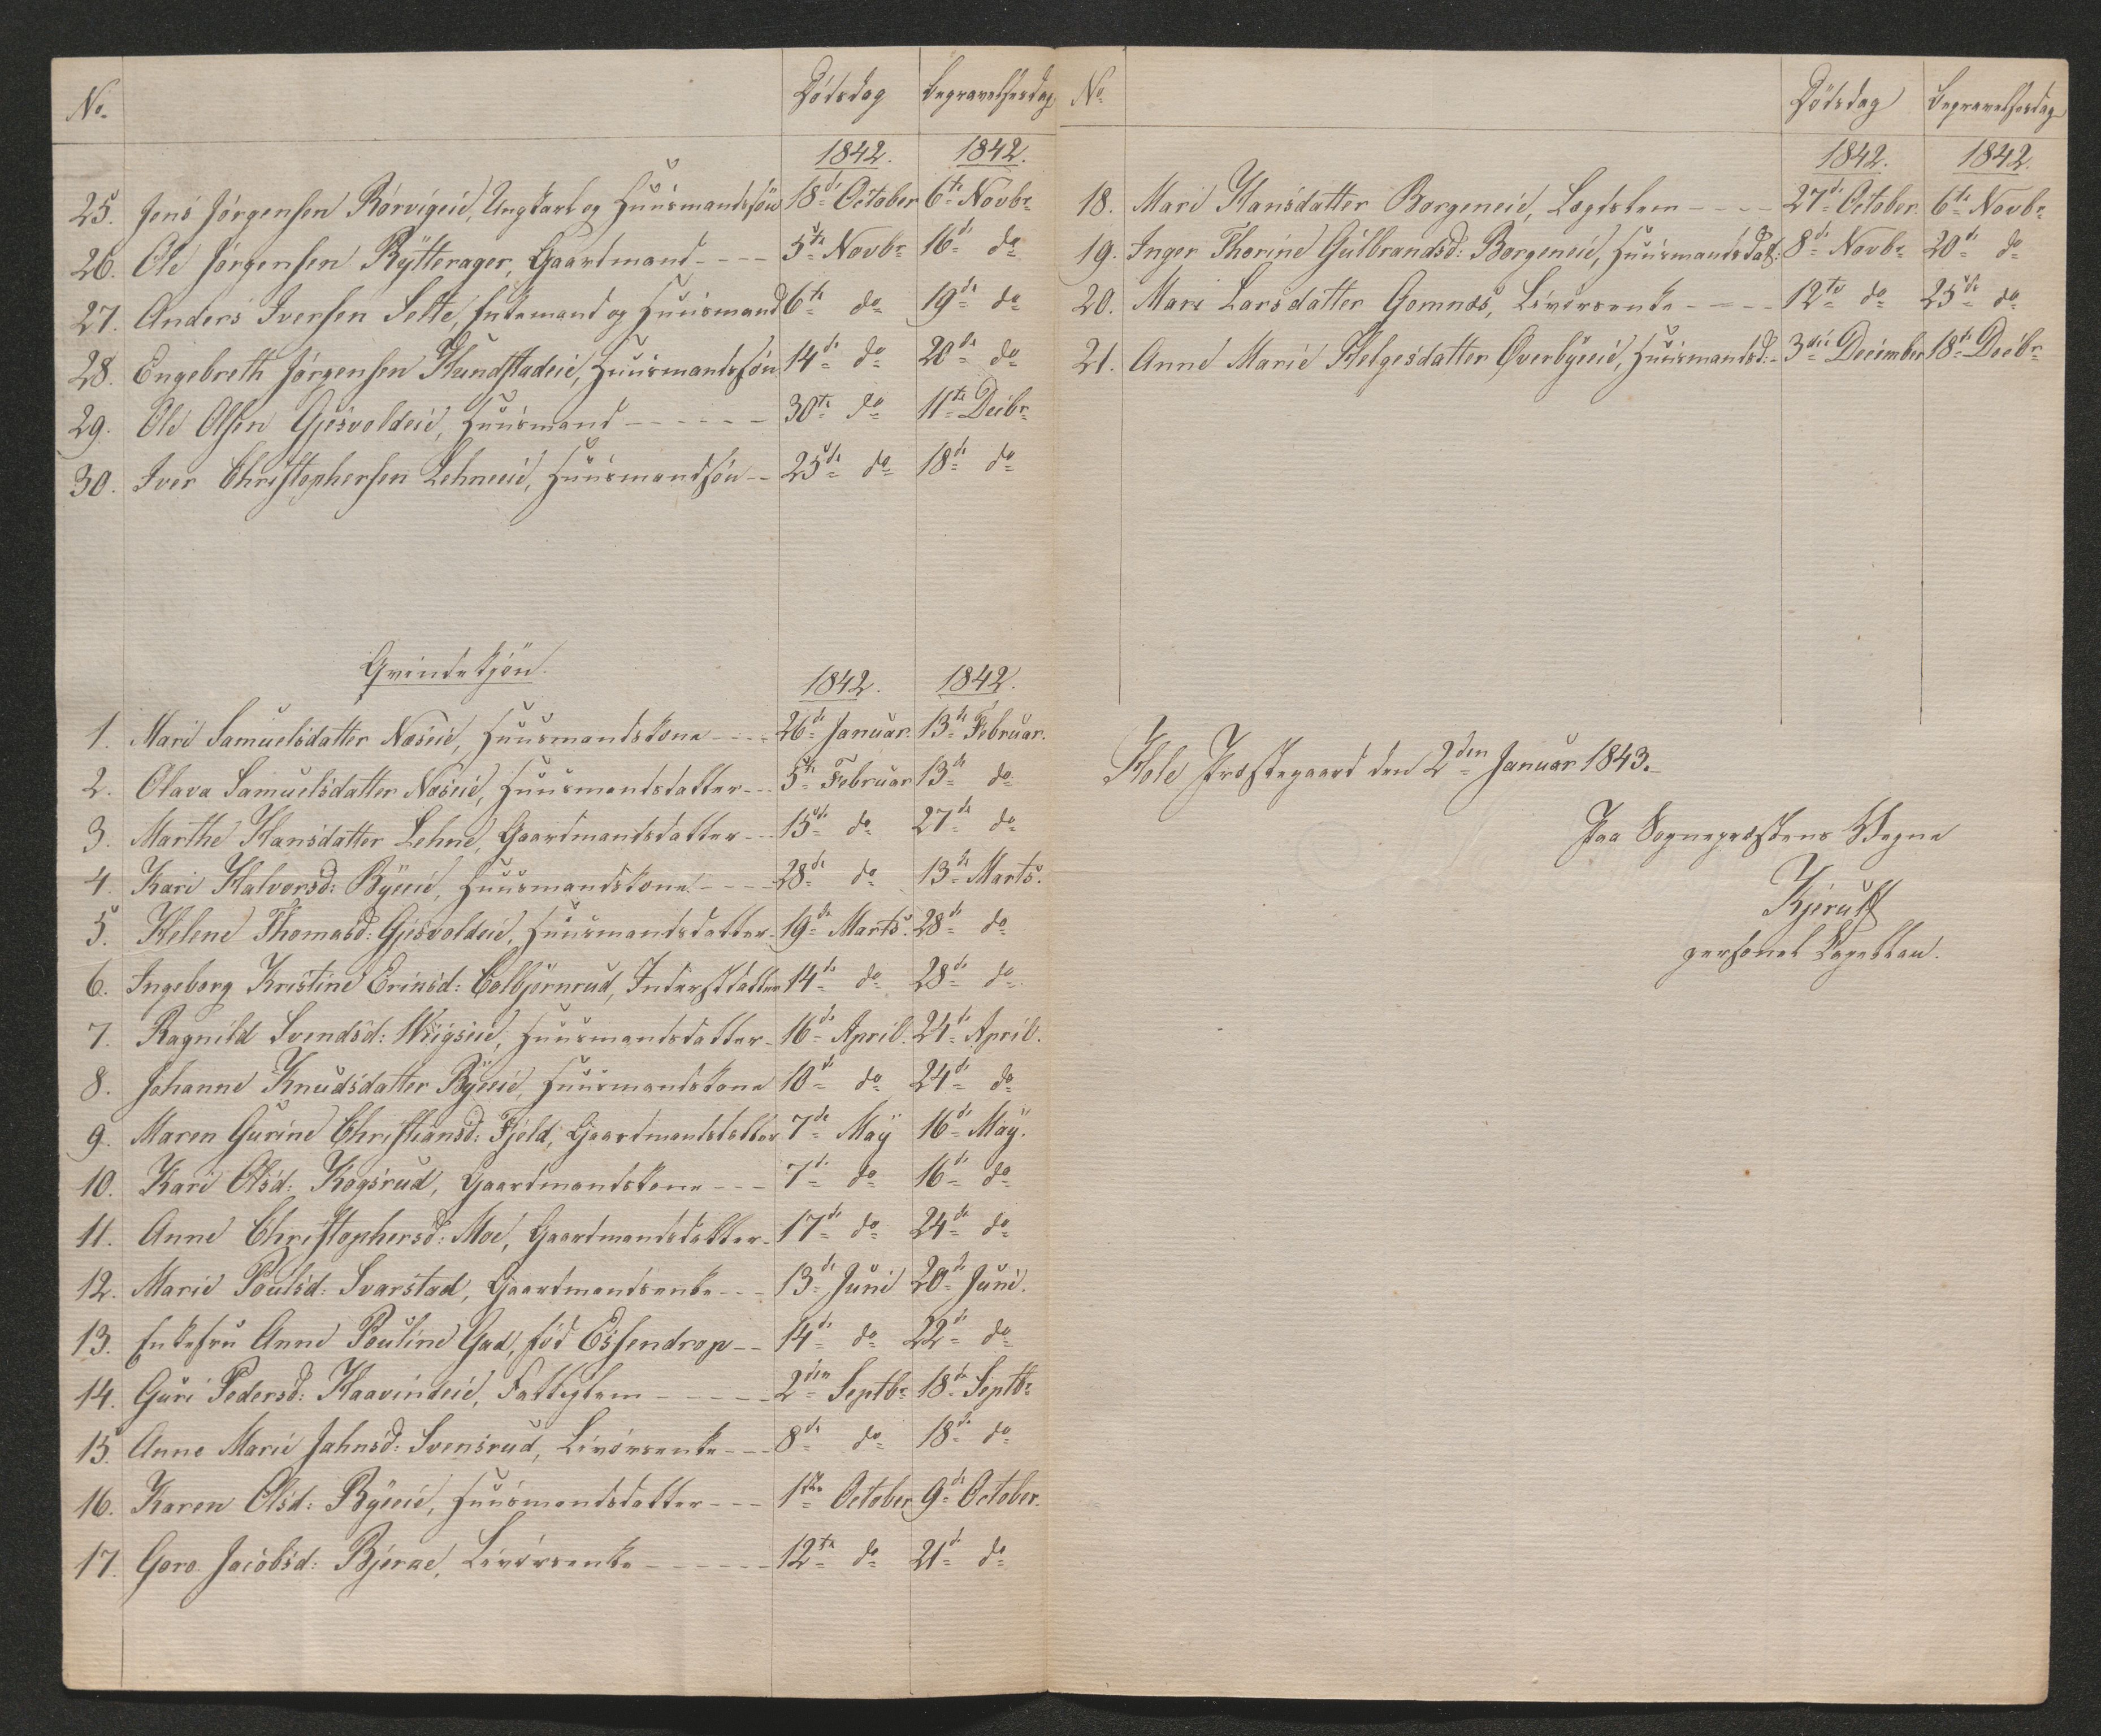 No. Dødsdag Begravelsesdag
1842. 1842.
25. Jens Jørgensen Rørvigeie, Ungkarl og Huusmandssøn 18de October 6te Novbr.
26. Ole Jørgensen Rÿtterager, Gaardmand - - - - 5te Novbr. 16de do
27. Anders Iversen Selte, Enkemand og Huusmand 6te do 19de do
28. Engebreth Jørgensen Hundstadeie, Huusmandssøn 14de do 20de do
29. Ole Olsen Gjesvoldeie, Huusmand - - - - - - 30te do 11te Decbr.
30. Iver Christophersen Lehneeie, Huusmandssøn - - 25de do 18de do
Qvindekjøn.
1842. 1842.
1. Mari Samuelsdatter Næseie, Huusmandskone - - - - 26de Januar. 13de Februar.
2. Olava Samuelsdatter Næseie, Huusmandsdatter - - - 5te Februar 13de do
3. Marthe Hansdatter Lehne, Gaardmandsdatter - - - 15de do 27de do
4. Kari Halvorsd: Bÿeeie, Huusmandskone - - - - 28de do 13de Marts.
5. Helene Thomasd: Gjesvoldeie, Huusmandsdatter - 19de Marts. 28de do
6. Ingeborg Kristine Ericsd: Colbjørnrud, Inderstdatter 14de do 28de do
7. Ragnild Svendsd: Wiigseie, Huusmandsdatter - 16de April. 24de April.
8. Johanne Knudsdatter Bÿeeie, Huusmandskone 10de do 24de do
9. Maren Gurine Christiansd: Fjeld, Gaardmandsdatter 7de Maÿ 16de Maÿ.
10. Kari Olsd: Kogsrud, Gaardmandskone - - - 7de do 16de do
11. Anne Christophersd: Moe, Gaardmandsdatter - 17de do 24de do
12. Marie Poulsd: Svarstad, Gaardmandsenke - - - 13de Juni 20de Juni.
13. Enkefru Anne Pouline Gad, fød Essendrop - - 14de do 22de do
14. Guri Pedersd: Haavindeie, Fattiglem - - - - - 2den Septbr. 18de Septbr.
15. Anne Marie Jahnsd: Svensrud, Livørsenke - - - 8de do 18de do
16. Karen Olsd: Bÿeeie, Huusmandsdatter - - - 1ste October 9de October.
17. Goro Jacobsd: Bjerae, Livørsenke - - - - - - 12te do 21de do
No. Dødsdag Begravelsesdag
1842. 1842.
18. Mari Hansdatter Borgeneie, Lægdslem - - - - 27de October. 6te Novbr.
19. Inger Thorine Gulbrandsd: Borgeneie, Huusmandsdat: 8de Novbr. 20de do
20. Mari Larsdatter Gomnæs, Livørsenke - - - - 12te do 25de do
21. Anne Marie Helgesdatter Øverbÿeeie, Huusmandsd: - 3die December 18de Decbr.
Hole Præstegaard den 2den Januar 1843.
Paa Sognepræstens Vegne
Kjerulf
personel Kapellan.